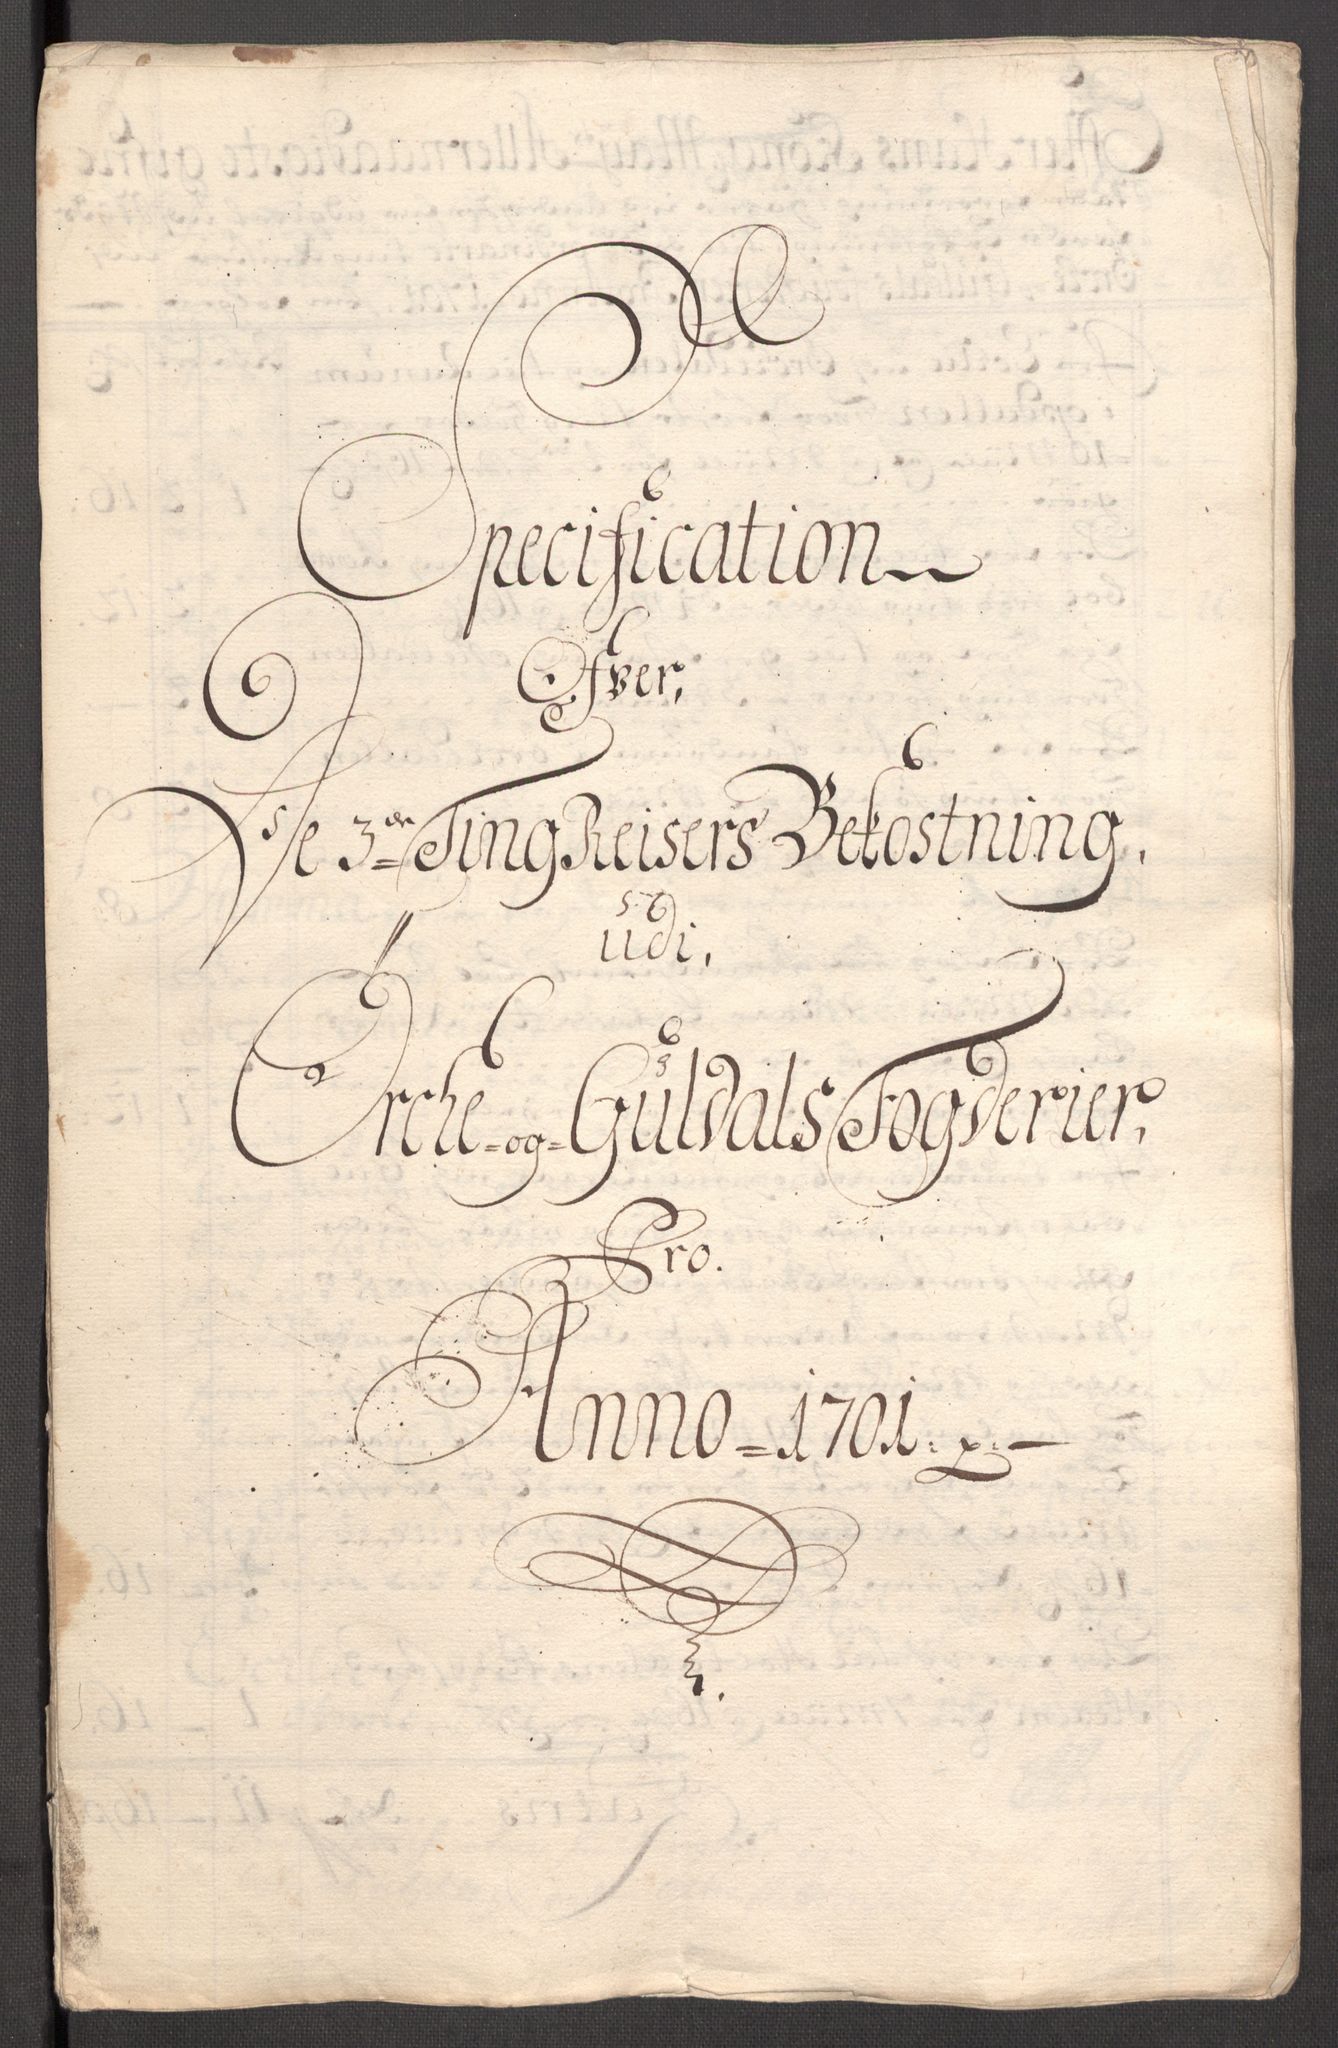 Specification
Ofver,
De 3de Ting Reisers Bekostning,
üdi,
Orche-og-Güldals Fogderier,
Pro.
Anno-1701.